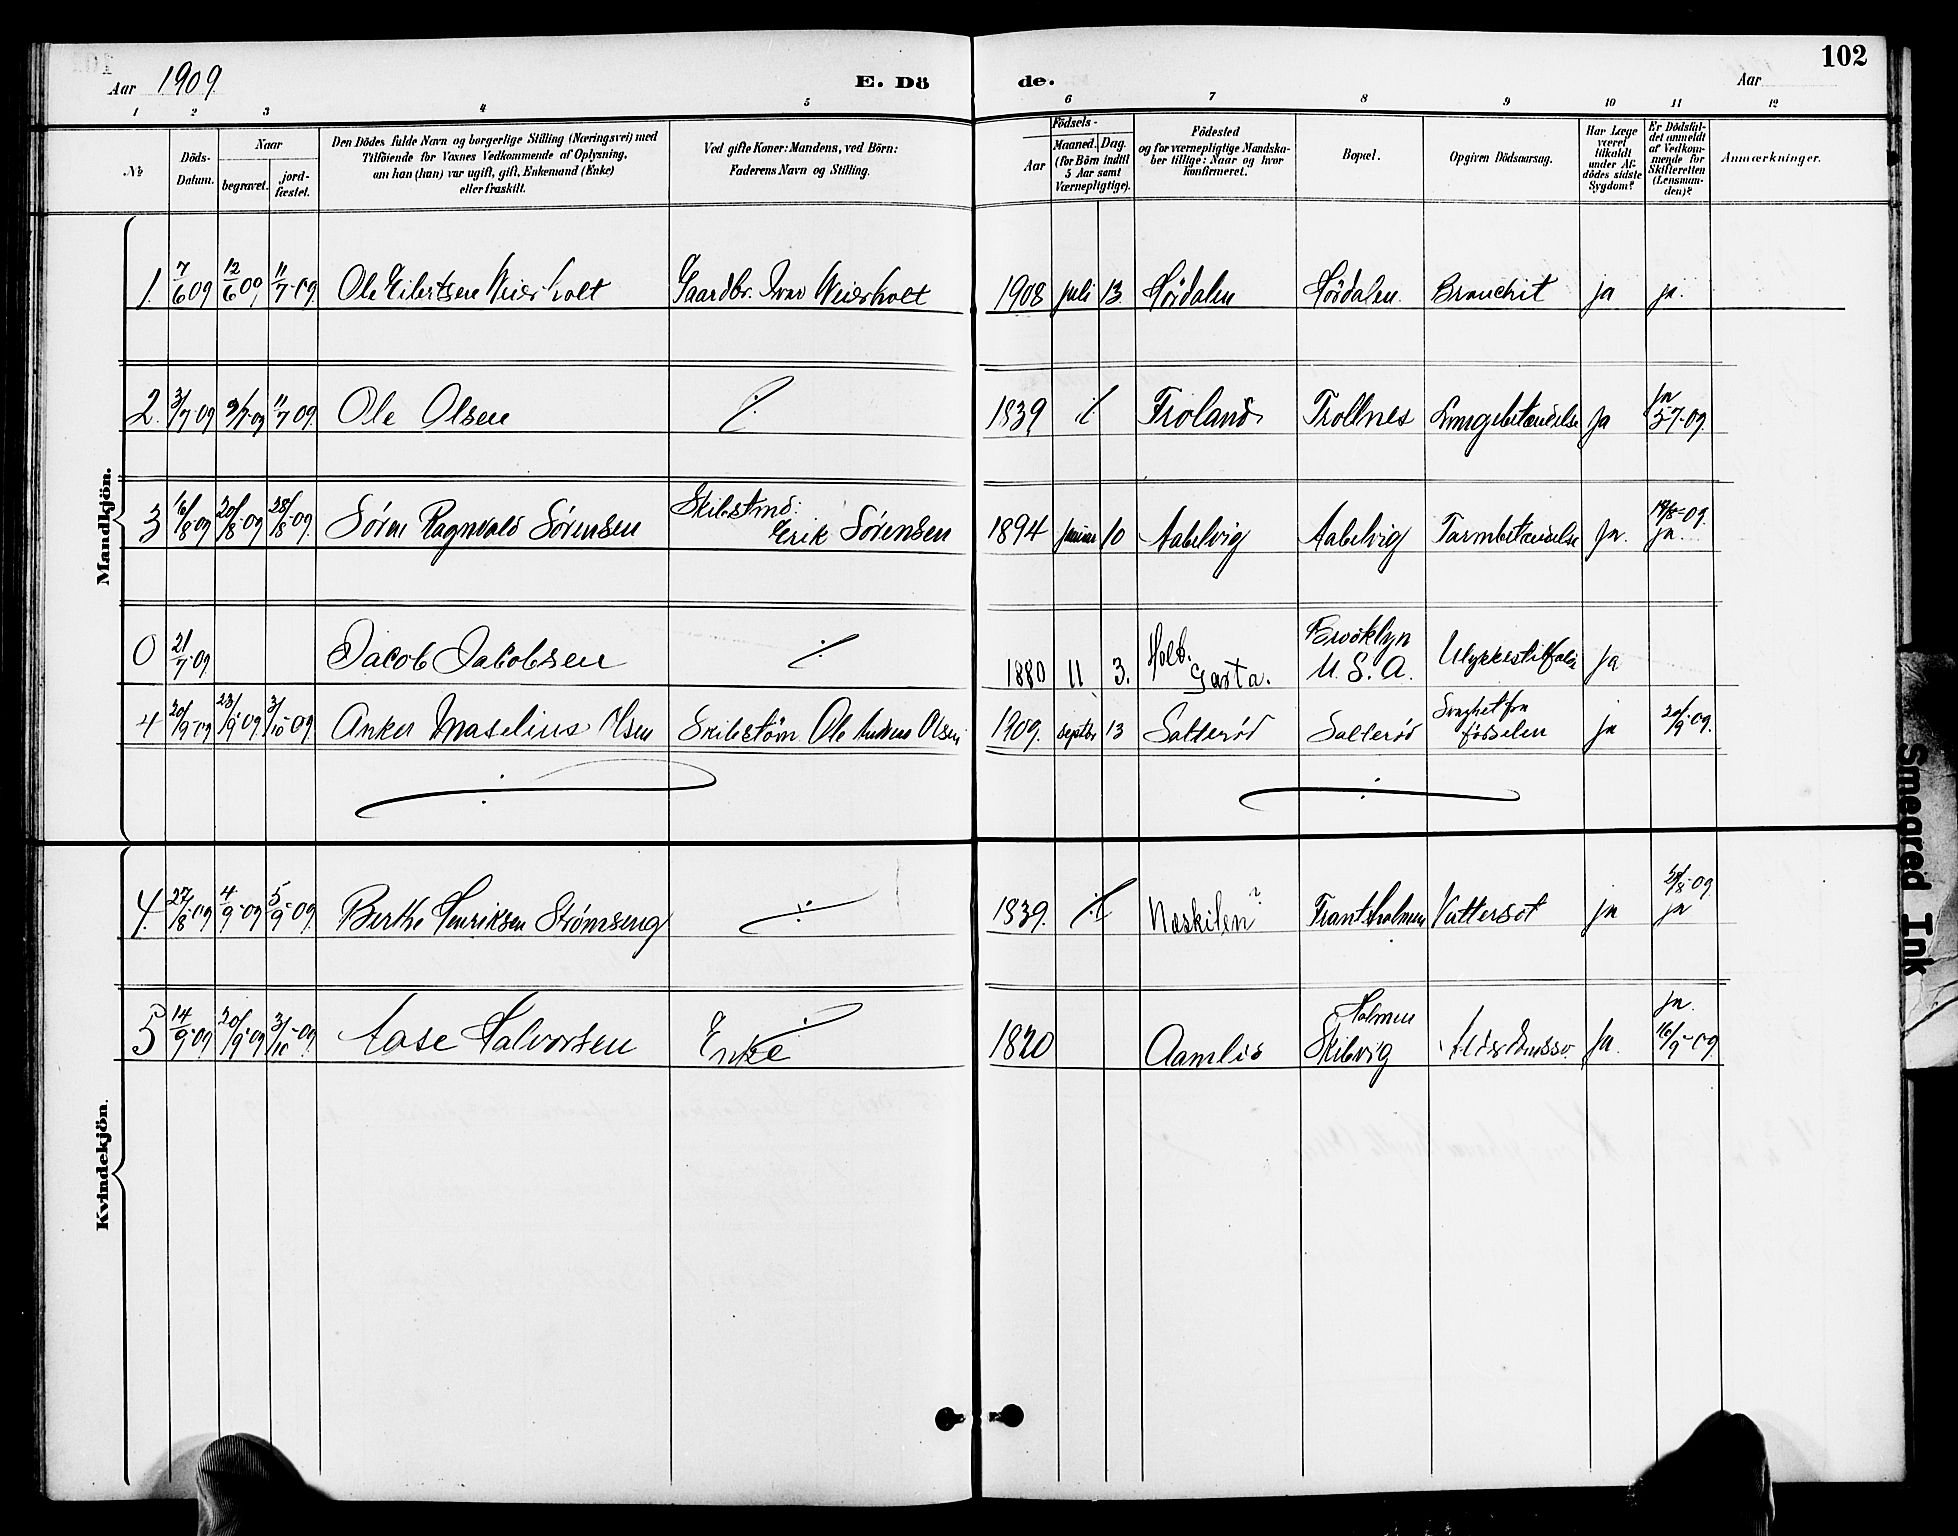 102
Aar 1909
E. Dö
de.
Aar
1 2 3 4 5 6 7 8 9 10 11 12
№
Döds-
Datum.
Naar
begravet.
jord-
fæstet.
Den Dödes fulde Navn og borgerlige Stilling (Næringsvei) med
Tilföiende for Voxnes Vedkommende af Oplysning,
om han (hun) var ugift, gift, Enkemand (Enke)
eller fraskilt.
Ved gifte Koner: Mandens, ved Börn:
Faderens Navn og Stilling.
Födsels-
Aar
Maaned. Dag.
(for Börn indtil
5 Aar samt
Værnepligtige).
Födested
og for værnepligtige Mandska-
ber tillige: Naar og hvor
konfirmeret.
Bopæl.
Opgiven Dödsaarsag.
Har Læge
været
tilkaldt
under Af-
dödes sidste
Sygdom?
Er Dödsfal-
det anmeldt
af Vedkom-
mende for
Skifteretten
(Lensman-
den)?
Anmærkninger.
Mandkjön.
1. 7/6 09 12/6 09 11/7-09. Ole Eilertsen Weierholt Gaardbr. Ivar Weierholt 1908 juli 13. Hördalen Hördalen. Bronchit ja ja.
2. 3/7 09 9/7-09 11/7 09. Ole Olsen ./. 1839 ./. Froland Trollnes Lungebetændelse Ja Ja 5-7-09.
3 16/8 09 20/8-09 28/8-09. Søren Ragnvald Sørensen Skibstmd: Erik Sørensen 1894 januar 10 Aabelvig Aabelvig Tarmbetændelse Ja. 19/8-09. ja.
0 21/7-09 Jacob Jacobsen ./. 1880 11 3. Holt. Garta. Brooklyn U. S. A. Ulykkestilfælde Ja
4 20/9-09 23/9-09 3/10-09. Anker Maselius Olsen Skibstøm. Ole Andreas Olsen 1909. septbr 13 Satterød Salterød Svaghet fra fødselen ja 20/9-09.
Kvindekjön.
4. 27/8-09 4/9-09 5/9-09. Berthe Henriksen Strømseng ./. 1839. ./. Næskilen? Frantsholmen Vattersot ja 28/8-09. ja
5 14/9-09 20/9-09 3/10-09. Aase Halvorsen Enke ./. 1820 Aamlis Holmen Skilvig Ja. Ja. 16/9-09.
Smeared Ink